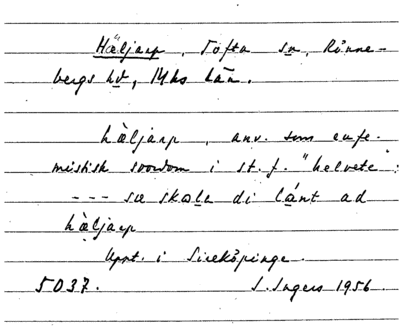 Häljarp, Tofta sn, Rönne-
bergs hd, Mhs län.
hàljarp, anv. som eufe-
mistisk svordom i st. f. "helvete":
--- sæ skale di lánt ad
hàljarp
Uppt. i Sireköpinge.
5037. S. Ingers 1956.